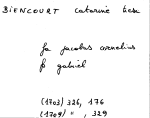 BIENCOURT catarine
fa jacobus cornelius
fr gabriel
(1703) 326, 176
(1709) " , 329